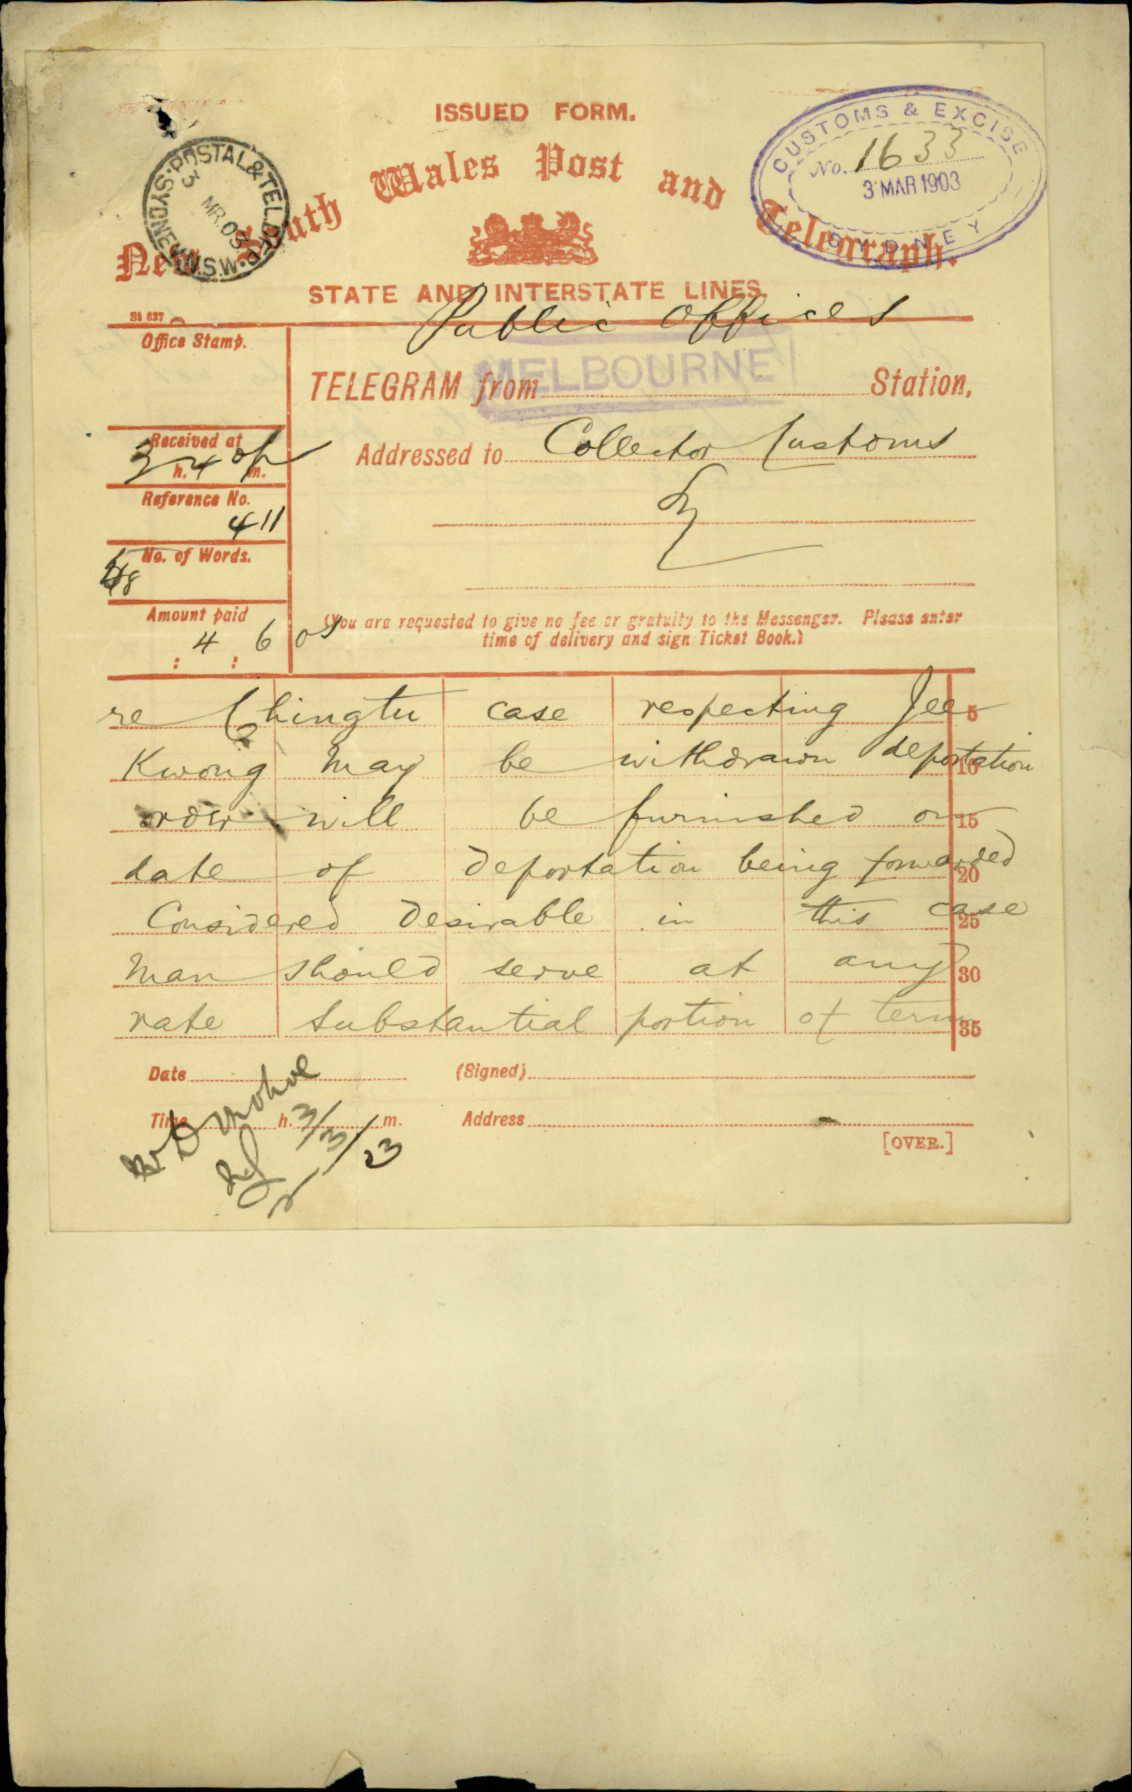 ISSUED FORM.
New South Wales Post and Telegraph.
POSTAL & TEL. SYDNEY N.S.W.
3 MR.03
CUSTOMS & EXCISE
No. 1633
3 MAR 1903
SYDNEY
STATE AND INTERSTATE LINES.
Public Offices
Office Stamp.
MELBOURNE
TELEGRAM from Station,
Received at
3 h. 4 m.
Addressed to Collector Customs
Reference No.
411
Sy
No. of Words.
48
Amount paid
: 4 : 6 OS
(You are requested to give no fee or gratuity to the Messenger. Please enter
time of delivery and sign Ticket Book.)
re Chingtu case respecting Jee 5
Kwong May be withdrawn deportation 10
order will be furnished on 15
date of deportation being forwarded 20
Considered desirable in this case 25
man should serve at any 30
rate substantial portion of term 35
Date (Signed)
Time h. m. Address
3/3/03
[OVER.]